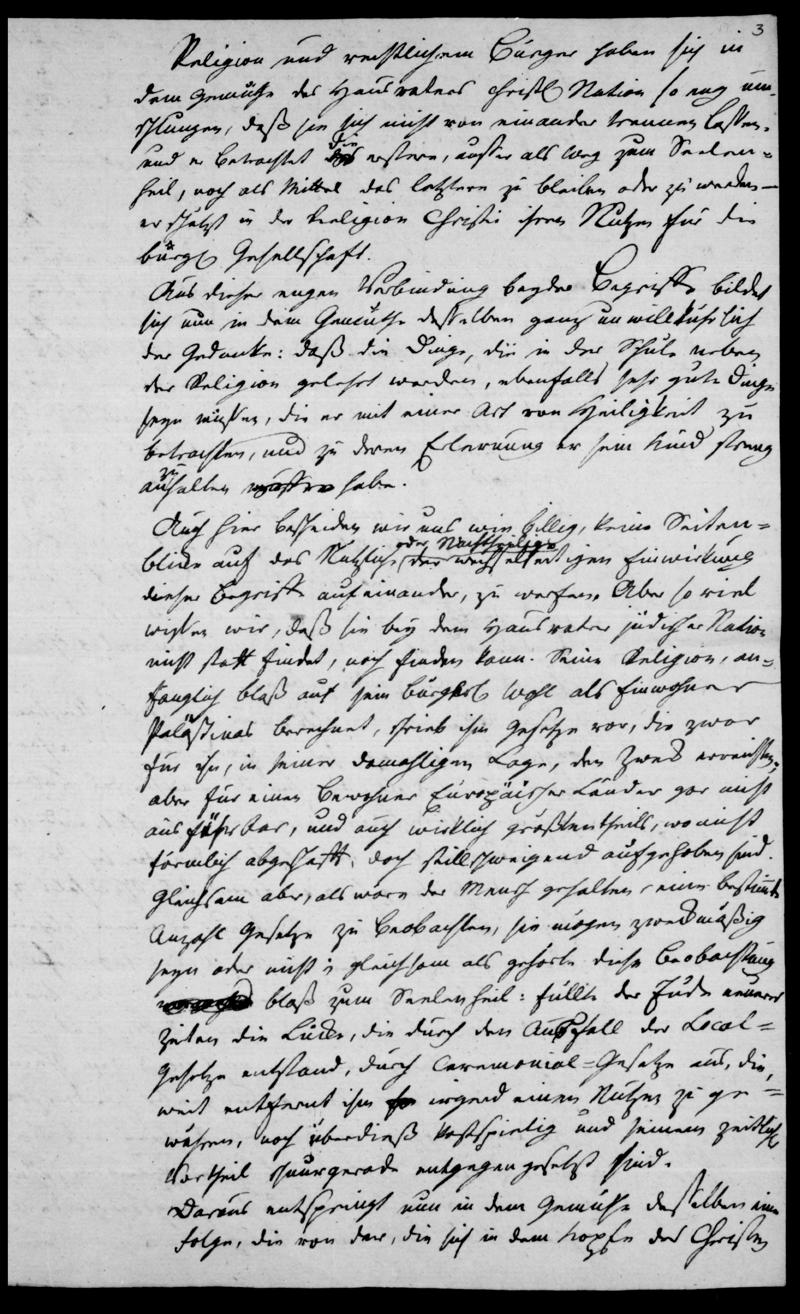 3
Religion und rechtlichem Bürger haben sich in
dem Gemüthe des Hausvaters christl Nation so eng um-
schlungen, daß sie sich nicht von einander trennen lassen.
und er betrachtet die erstere, ausser als Weg zum Seelen=
heil, noch als Mittel das letztere zu bleiben oder zu werden —
er schätzt in der Religion Christi ihren Nutzen für die
bürgl Gesellschaft.
Aus dieser engen Verbindung beyder Begriffe bildet
sich nun in dem Gemüthe desselben ganz unwillkührlich
der Gedanke: daß die Dinge, die in der Schule neben
der Religion gelehrt werden, ebenfalls sehr gute Dinge
seyn müssen, die er mit einer Art von Heiligkeit zu
betrachten, und zu deren Erlernung er sein Kind streng
anzuhalten habe.
Auch hier bescheiden wir uns wie billig, keine Seiten=
blicke auf das Nützliche oder Nachtheilige der wechselseitigen Einwirkung
dieser Begriffe aufeinander, zu werfen. Aber so viel
wissen wir, daß sie bey dem Hausvater jüdischer Nation
nicht statt findet, noch finden kann. Seine Religion, an=
fänglich blaß auf sein bürgerl Wohl als Einwohner
Palästinas berechnet, schrieb ihm Gesetze vor, die zwar
für ihn, in seiner damahligen Lage, den Zweck erreichten,
aber für einen Bewohner Europäischer Länder gar nicht
ausführbar, und auch wirklich großtentheils, wo nicht
förmlich abgeschafft, doch stillschweigend aufgehoben sind.
Gleichsam aber, als wäre der Mensch gehalten eine bestimmte
Anzahl Gesetze zu beobachten, sie mögen zweckmäßig
seyn oder nicht; gleichsam als gehörte diese Beobachtung
blaß zum Seelenheil: füllte der Jude neuerer
Zeiten die Lücke, die durch den Ausfall der Local=
Gesetze entstand, durch Ceremonial=Gesetze aus, die,
weit entfernt ihm irgend einen Nutzen zu ge=
währen, noch überdieß kostspielig und seinem zeitlich
Vortheil schnurgerade entgegen gesetzt sind.
Daraus entspringt nun in dem Gemüthe desselben eine
Folge, die von der, die sich in dem Kopfe des Christen